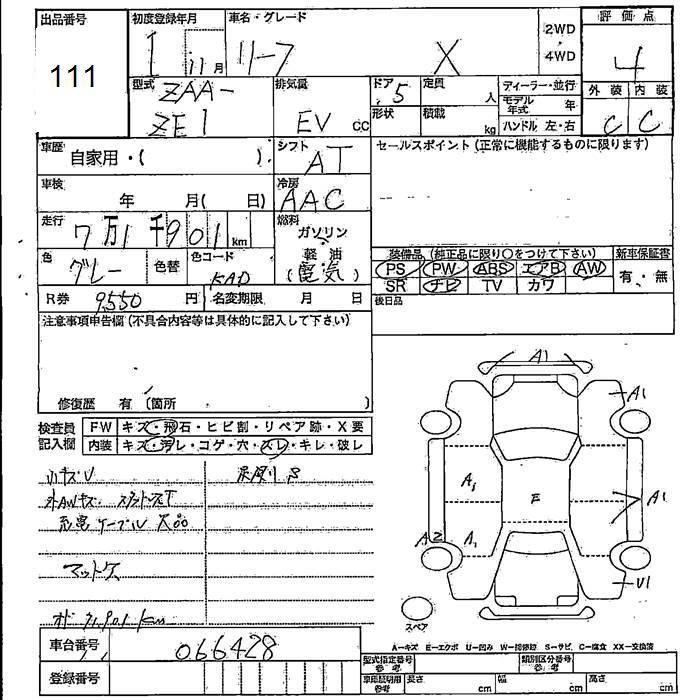 出品番号 初度登録年月 車名・グレード 評価点
111 1 11月 リーフ X 2WD・4WD 4
型式 ZAA-ZE1 排気量 EV CC ドア 5 定員 人 ディーラー・並行 外装 内装
形状 積載 kg モデル年式 年 C C
ハンドル 左・右
車歴 自家用・( ) シフト AT セールスポイント (正常に機能するものに限ります)
車検 年 月( 日) 冷房 AAC
走行 7万1千901km 燃料 ガソリン・軽油 (電気)
色 グレー 色替 色コード KAD
装備品 (純正品に限り○をつけて下さい) 新車保証書
PS PW ABS エアB AW 有・無
SR ナビ TV カワ
R券 9,550円 名変期限 月 日 後日品
注意事項申告欄 (不具合内容等は具体的に記入して下さい)
修復歴 有 (箇所 )
検査員記入欄 FW キズ・飛石・ヒビ割・リペア跡・X要
内装 キズ・汚レ・コゲ・穴・スレ・キレ・破レ
小キズU
外AWキズ
充電ケーブル欠品
マット欠
オド 71,901km
A1
A1
A1
A1
F
A2
A1
U1
スペア
A-キズ E-エクボ U-凹み W-補修跡 S-サビ C-腐食 XX-交換済
車台番号 066428
登録番号
型式指定番号 参考 類別区分番号 参考
車庫証明用 参考 長さ cm 幅 cm 高さ cm